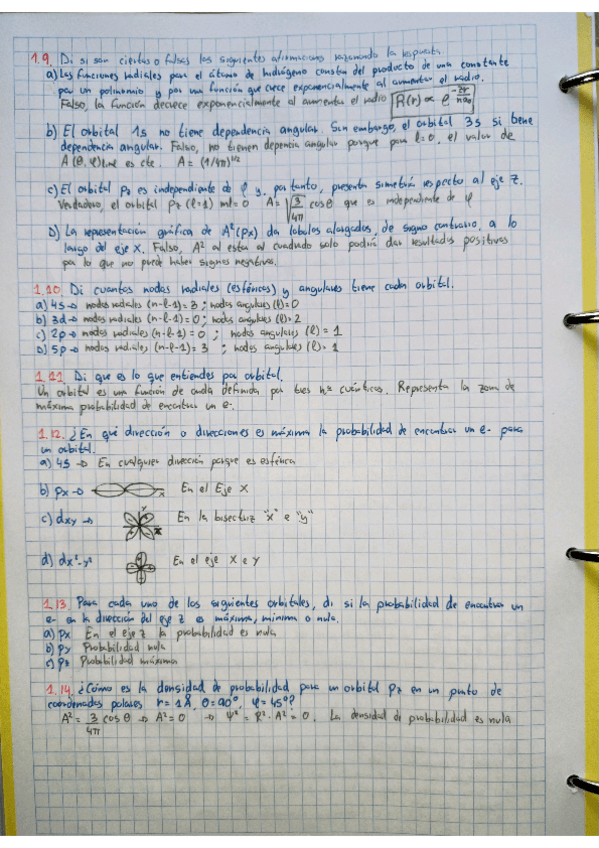 1.9. Di si son ciertas o falsas las siguientes afirmaciones razonando la respuesta
a) Las funciones radiales para el átomo de hidrógeno constan del producto de una constante
por un polinomio y por una función que crece exponencialmente al aumentar el radio.
Falso, la función decrece exponencialmente al aumentar el radio R(r) ∝ e^(-Zr/na₀)
b) El orbital 1s no tiene dependencia angular. Sin embargo, el orbital 3s si tiene
dependencia angular. Falso, no tienen depencia angular porque para l=0, el valor de
A(θ,φ) es cte. A = (1/4π)^1/2
c) El orbital pz es independiente de φ y, por tanto, presenta simetría respecto al eje z.
Verdadero, el orbital pz (l=1) ml=0 A=√(3/4π) cosθ que es independiente de φ
D) La representación gráfica de A²(px) da lóbulos alargados, de signo contrario, a lo
largo del eje X. Falso, A² al estar al cuadrado solo podría dar resultados positivos
por lo que no puede haber signos negativos.
1.10 Di cuantos nodos radiales (esféricos) y angulares tiene cada orbital.
a) 4s → nodos radiales (n-l-1)=3; nodos angulares (l)=0
b) 3d → nodos radiales (n-l-1)=0; nodos angulares (l)=2
c) 2p → nodos radiales (n-l-1)=0; nodos angulares (l)=1
D) 5p → nodos radiales (n-l-1)=3; nodos angulares (l)=1
1.11 Di que es lo que entiendes por orbital.
Un orbital es una función de onda definida por tres nos cuánticos. Representa la zona de
máxima probabilidad de encontrar un e-.
1.12. ¿En qué dirección o direcciones es máxima la probabilidad de encontrar un e- para
un orbital.
a) 4s → En cualquier dirección porque es esférica
b) px → x En el Eje X
c) dxy → y x En la bisectriz "x" e "y"
d) dx²-y² En el eje X e Y
1.13. Para cada uno de los siguientes orbitales, di si la probabilidad de encontrar un
e- en la dirección del eje z es máxima, mínima o nula.
a) px En el eje z la probabilidad es nula
b) py Probabilidad nula
c) pz Probabilidad máxima
1.14. ¿Cómo es la densidad de probabilidad para un orbital pz en un punto de
coordenadas polares r=1Å, θ=90°, φ=45°?
A² = 3/4π cosθ → A²=0 → Ψ²=R²·A²=0. La densidad de probabilidad es nula